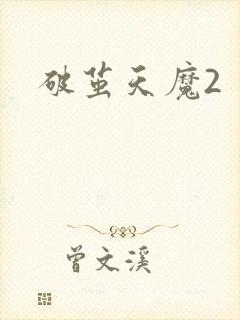 破茧天魔2
曾文溪